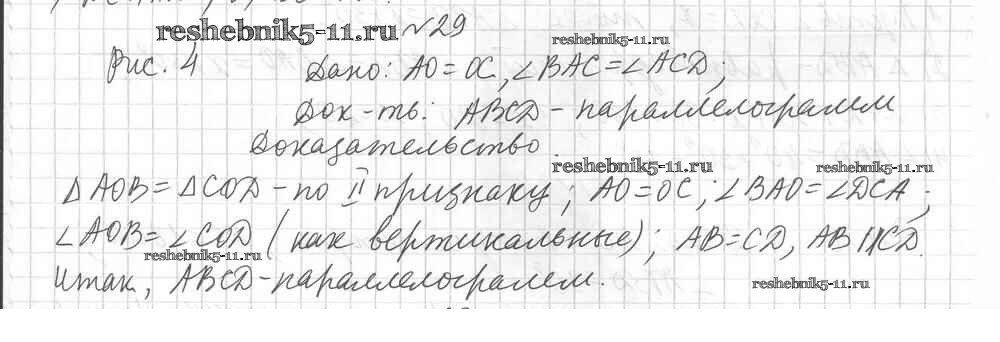 reshebnik5-11.ru №29
reshebnik5-11.ru
Рис. 4 Дано: AO=OC, ∠BAC=∠ACD;
Док-ть: ABCD - параллелограмм
Доказательство.
reshebnik5-11.ru
reshebnik5-11.ru
△AOB=△COD - по II признаку; AO=OC; ∠BAO=∠DCA;
∠AOB=∠COD (как вертикальные); AB=CD, AB∥CD.
reshebnik5-11.ru
Итак, ABCD-параллелограмм.
reshebnik5-11.ru